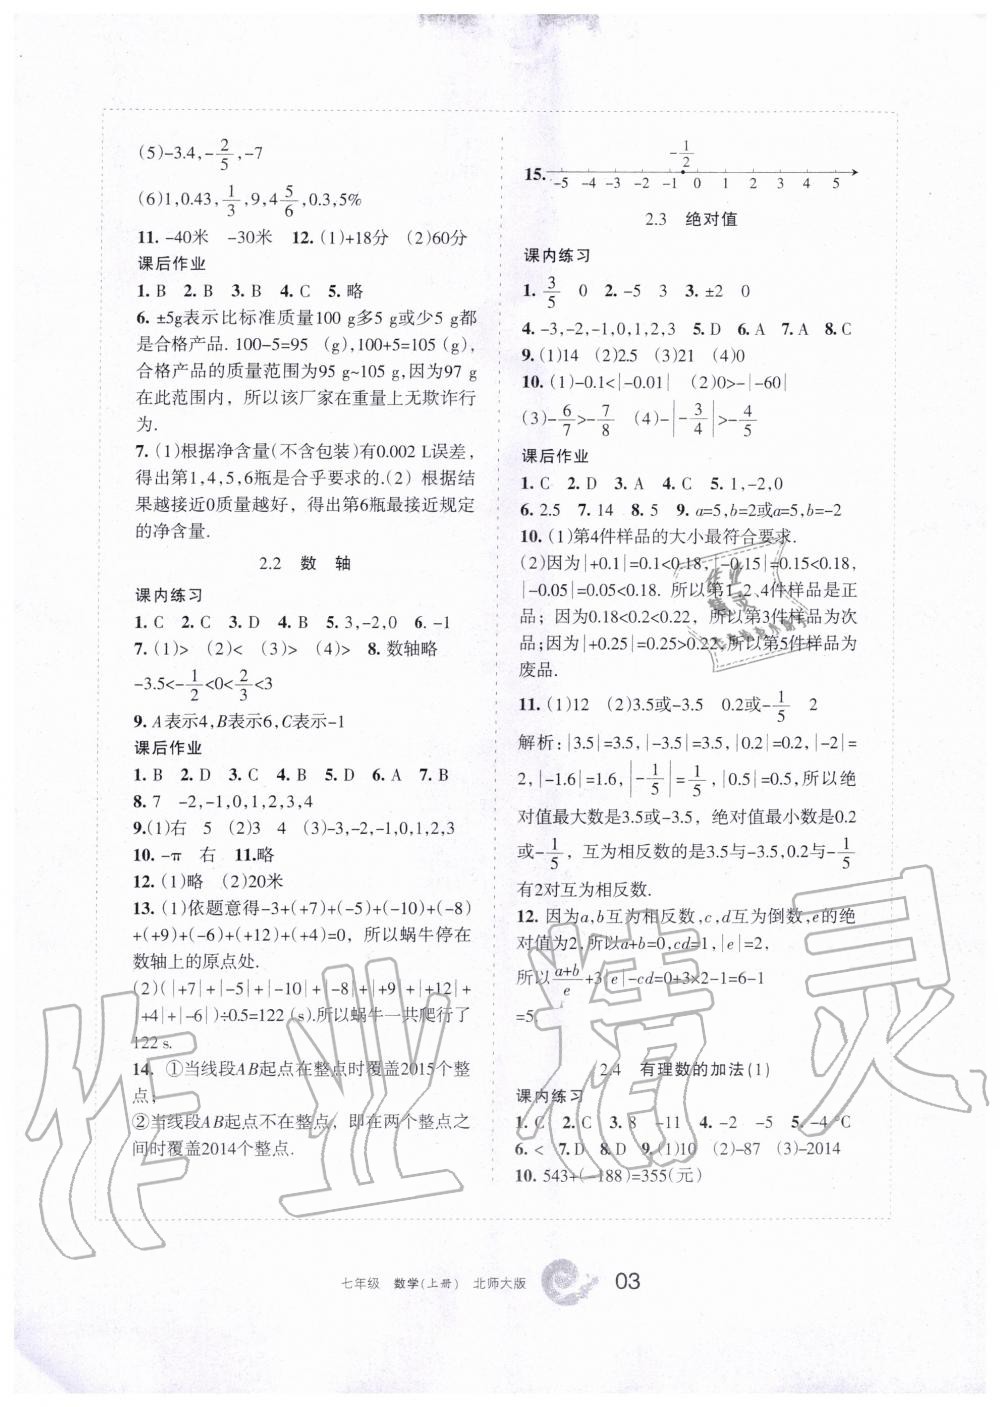 (5)-3.4,-2/5,-7
(6)1,0.43,1/3,9,4 5/6,0.3,5%
11. -40米 -30米 12. (1)+18分 (2)60分
课后作业
1. B 2. B 3. B 4. C 5. 略
6. ±5g表示比标准质量100 g多5 g或少5 g都
是合格产品. 100-5=95 (g),100+5=105 (g),
合格产品的质量范围为95 g~105 g,因为97 g
在此范围内，所以该厂家在重量上无欺诈行
为.
7. (1)根据净含量(不含包装)有0.002 L误差,
得出第1,4,5,6瓶是合乎要求的.(2) 根据结
果越接近0质量越好，得出第6瓶最接近规定
的净含量.
2.2 数 轴
课内练习
1. C 2. C 3. D 4. B 5. 3,-2,0 6. -1
7. (1)> (2)< (3)> (4)> 8. 数轴略
-3.5<-1/2<0<2/3<3
9. A表示4,B表示6,C表示-1
课后作业
1. B 2. D 3. C 4. B 5. D 6. A 7. B
8. 7 -2,-1,0,1,2,3,4
9.(1)右 5 (2)3 4 (3)-3,-2,-1,0,1,2,3
10. -π 右 11.略
12. (1)略 (2)20米
13. (1)依题意得-3+(+7)+(-5)+(-10)+(-8)
+(+9)+(-6)+(+12)+(+4)=0，所以蜗牛停在
数轴上的原点处.
(2)(|+7|+|-5|+|-10|+|-8|+|+9|+|+12|+
|+4|+|-6|)÷0.5=122 (s).所以蜗牛一共爬行了
122 s.
14. ①当线段AB起点在整点时覆盖2015个整
点；
②当线段AB起点不在整点，即在两个整点之
间时覆盖2014个整点.
-1/2
15. -5 -4 -3 -2 -1 0 1 2 3 4 5
2.3 绝对值
课内练习
1. 3/5 0 2. -5 3 3. ±2 0
4. -3,-2,-1,0,1,2,3 5. D 6. A 7. A 8. C
9. (1)14 (2)2.5 (3)21 (4)0
10. (1)-0.1<|-0.01| (2)0>-|-60|
(3)-6/7>-7/8 (4)-|-3/4|>-4/5
课后作业
1. C 2. D 3. A 4. C 5. 1,-2,0
6. 2.5 7. 14 8. 5 9. a=5,b=2或a=5,b=-2
10. (1)第4件样品的大小最符合要求.
(2)因为|+0.1|=0.1<0.18,|-0.15|=0.15<0.18,
|-0.05|=0.05<0.18. 所以第1、2、4件样品是正
品；因为0.18<0.2<0.22，所以第3件样品为次
品;因为|+0.25|=0.25>0.22,所以第5件样品为
废品.
11. (1)12 (2)3.5或-3.5 0.2或-1/5 2
解析:|3.5|=3.5,|-3.5|=3.5,|0.2|=0.2,|-2|=
2,|-1.6|=1.6,|-1/5|=1/5,|0.5|=0.5,所以绝
对值最大数是3.5或-3.5，绝对值最小数是0.2
或-1/5，互为相反数的是3.5与-3.5,0.2与-1/5
有2对互为相反数.
12. 因为a,b互为相反数,c,d互为倒数,e的绝
对值为2,所以a+b=0,cd=1,|e|=2,
所以 (a+b)/e+3|e|-cd=0+3×2-1=6-1
=5.
2.4 有理数的加法(1)
课内练习
1. C 2. C 3. 8 -11 4. -2 -5 5. -4 ℃
6. < 7. D 8. D 9. (1)10 (2)-87 (3)-2014
10. 543+(-188)=355(元)
七年级 数学(上册) 北师大版 03
作业精灵
作业
精灵